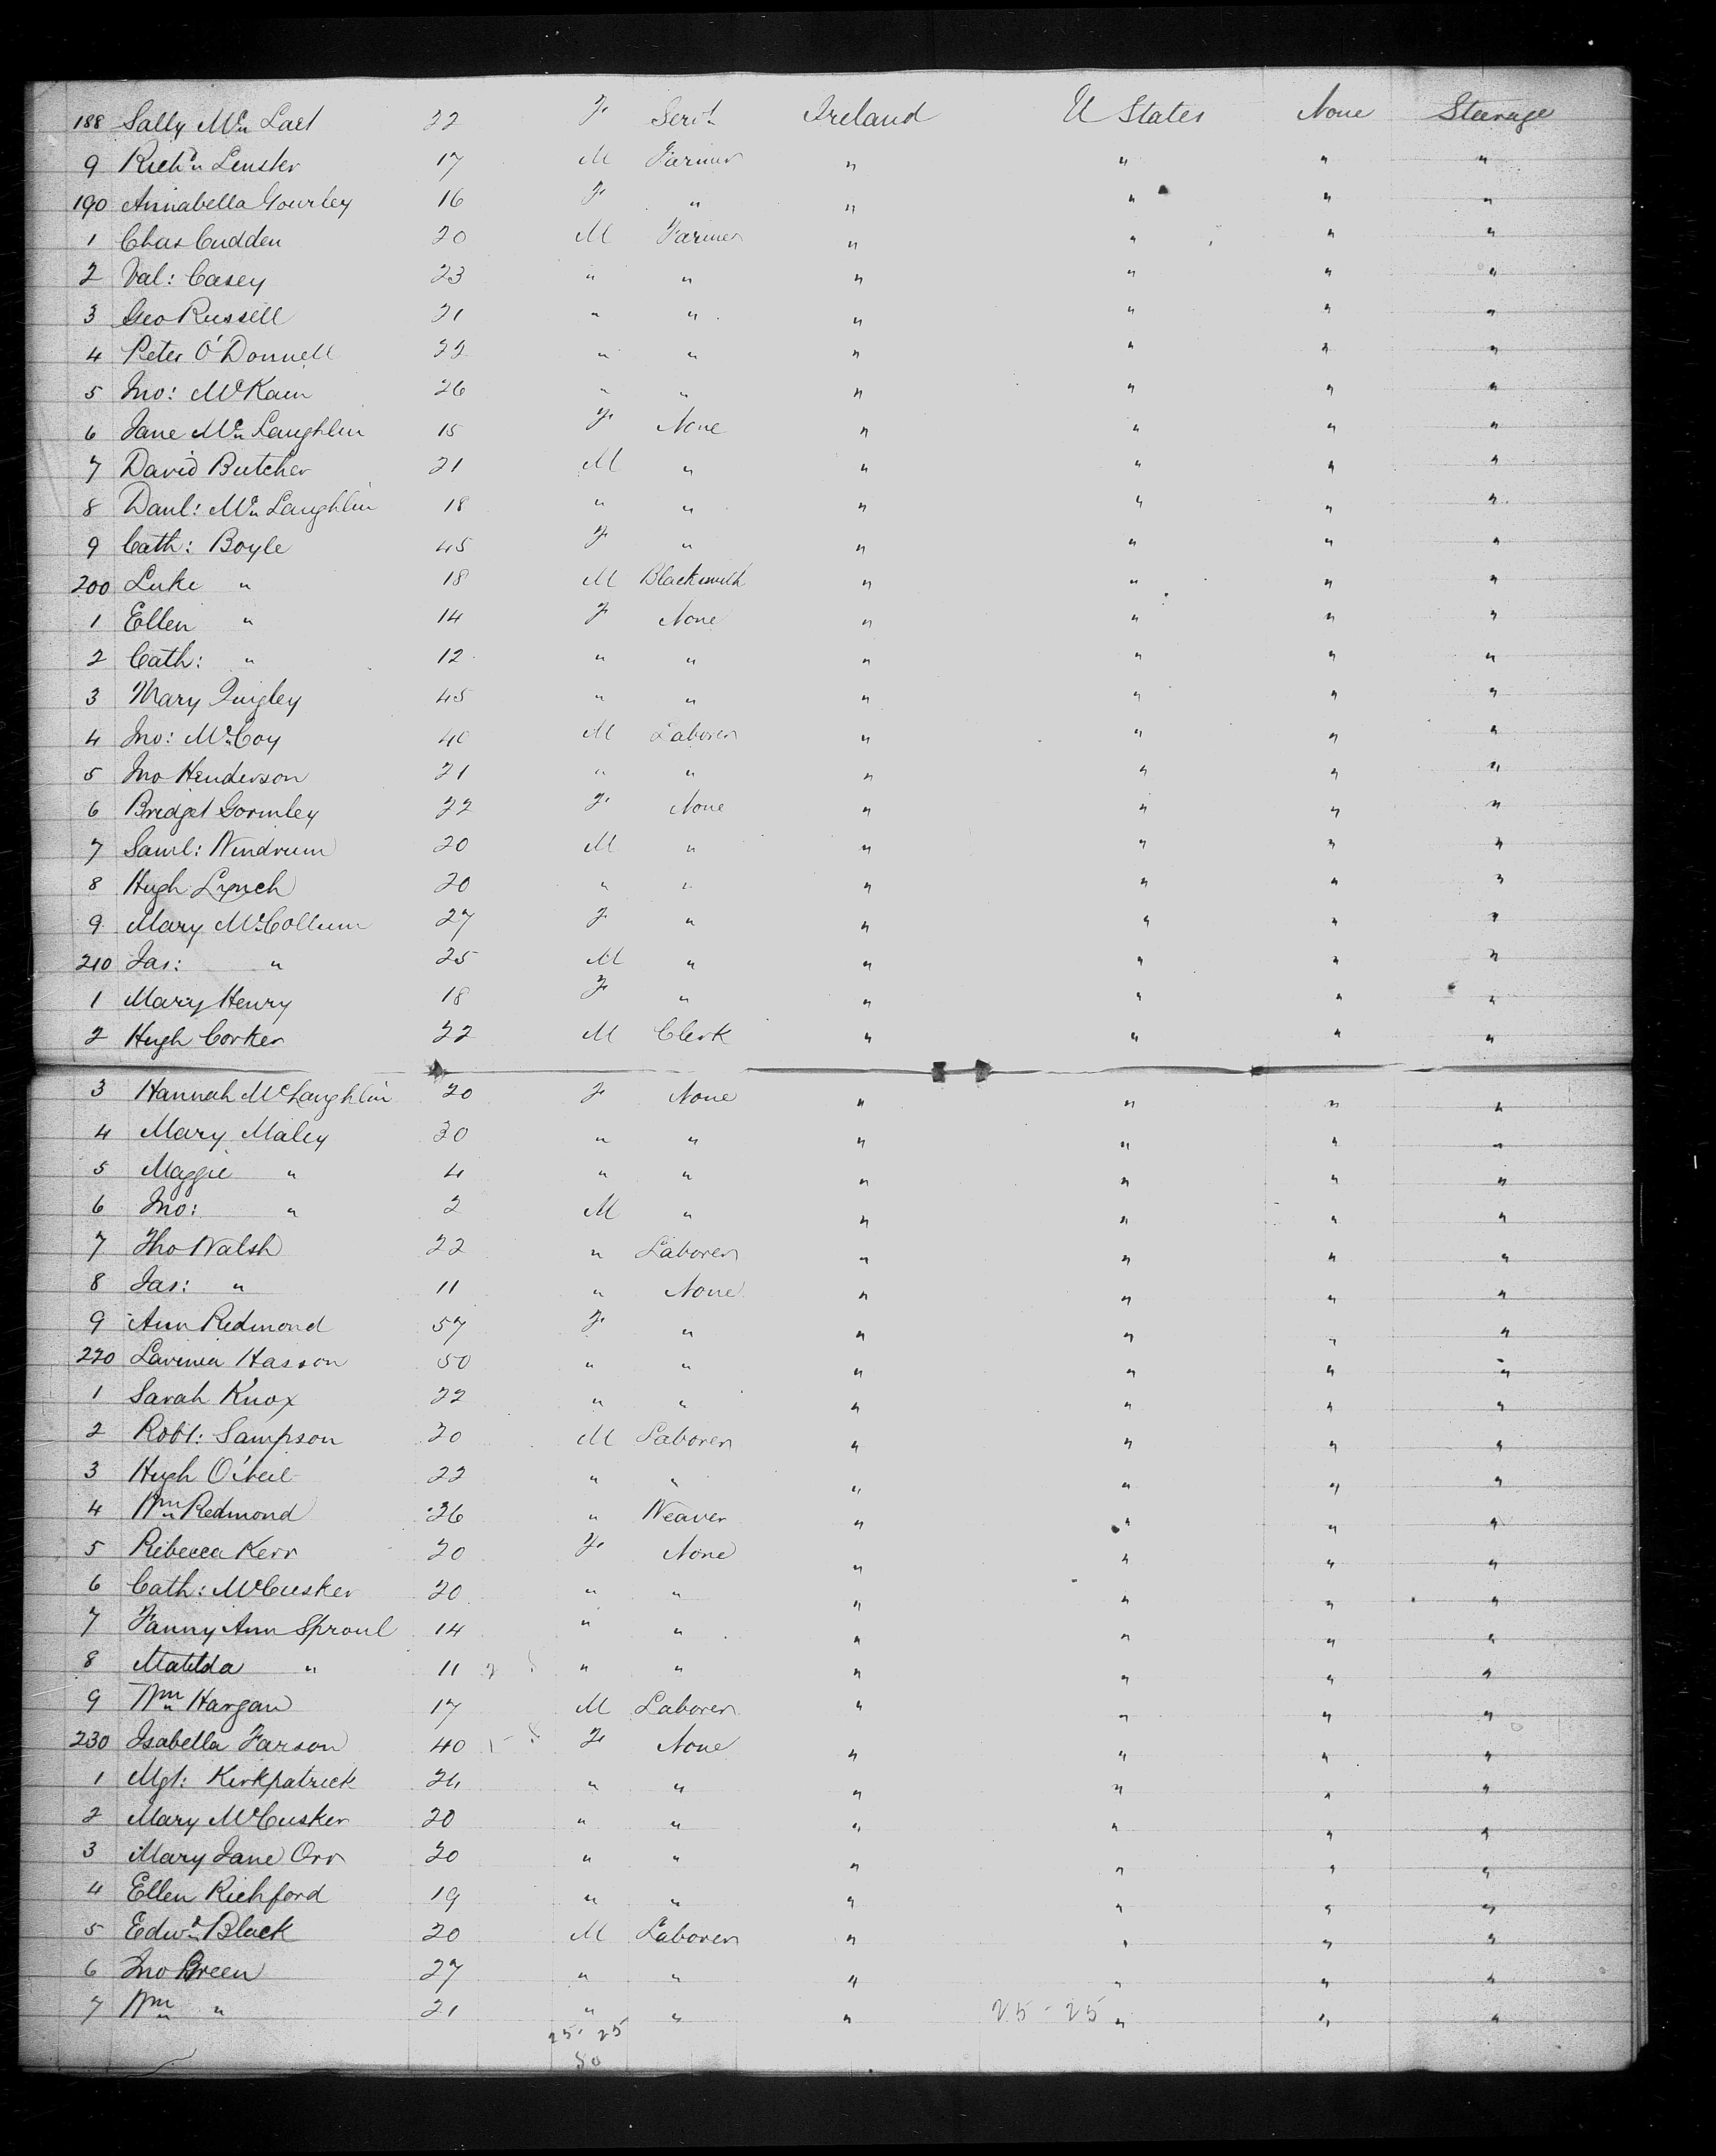 188 Sally Mc Lael 22 F Servt Ireland U States None Steerage
9 Richd Lenster 17 M Farmer " " " "
190 Annabella Gourley 16 F " " " " "
1 Chas Cudden 20 M Farmer " " " "
2 Val: Casey 23 " " " " " "
3 Geo Russell 21 " " " " " "
4 Peter O'Donnell 22 " " " " " "
5 Jno: McKain 26 " " " " " "
6 Jane Mc Laughlin 15 F None " " " "
7 David Butcher 21 M " " " " "
8 Danl: Mc Laughlin 18 " " " " " "
9 Cath: Boyle 45 F " " " " "
200 Luke " 18 M Blacksmith " " " "
1 Ellen " 14 F None " " " "
2 Cath: " 12 " " " " " "
3 Mary Quigley 45 " " " " " "
4 Jno: McCoy 40 M Laborer " " " "
5 Jno Henderson 21 " " " " " "
6 Bridget Gormley 22 F None " " " "
7 Saml: Windrum 20 M " " " " "
8 Hugh Lynch 20 " " " " " "
9 Mary McCollum 27 F " " " " "
210 Jas: " 25 M " " " " "
1 Mary Henry 18 F " " " " "
2 Hugh Corker 22 M Clerk " " " "
3 Hannah McLaughlin 20 F None " " " "
4 Mary Maley 30 " " " " " "
5 Maggie " 4 " " " " " "
6 Jno: " 2 M " " " " "
7 Tho Walsh 22 " Laborer " " " "
8 Jas: " 11 " None " " " "
9 Ann Redmond 57 F " " " " "
220 Lavinia Hasson 50 " " " " " "
1 Sarah Knox 22 " " " " " "
2 Robt: Sampson 20 M Laborer " " " "
3 Hugh O'Neil 22 " " " " " "
4 Wm Redmond 36 " Weaver " " " "
5 Rebecca Kerr 20 F None " " " "
6 Cath: McCusker 20 " " " " " "
7 Fanny Ann Sproul 14 " " " " " "
8 Matilda " 11 " " " " " "
9 Wm Hargan 17 M Laborer " " " "
230 Isabella Farson 40 F None " " " "
1 Mgt: Kirkpatrick 24 " " " " " "
2 Mary McCusker 20 " " " " " "
3 Mary Jane Orr 20 " " " " " "
4 Ellen Richford 19 " " " " " "
5 Edwd Black 20 M Laborer " " " "
6 Jno Breen 27 " " " " " "
7 Wm " 21 " " " 25 - 25 " " "
25 - 25
50